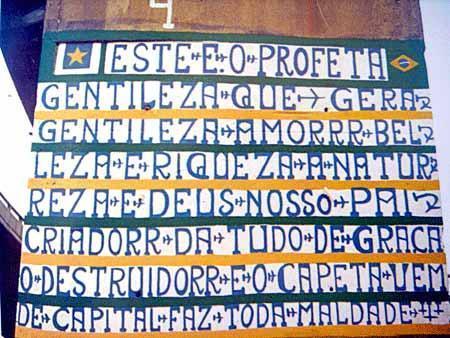 4
ESTE E O PROFETA
GENTILEZA QUE GERA
GENTILEZA AMORRR BEL
LEZA E RIQUEZA A NATUR
REZA E DEUS NOSSO PAI
CRIADORR DA TUDO DE GRAÇA
O DESTRUIDORR E O CAPETA VEM
DE CAPITAL FAZ TODA MALDADE